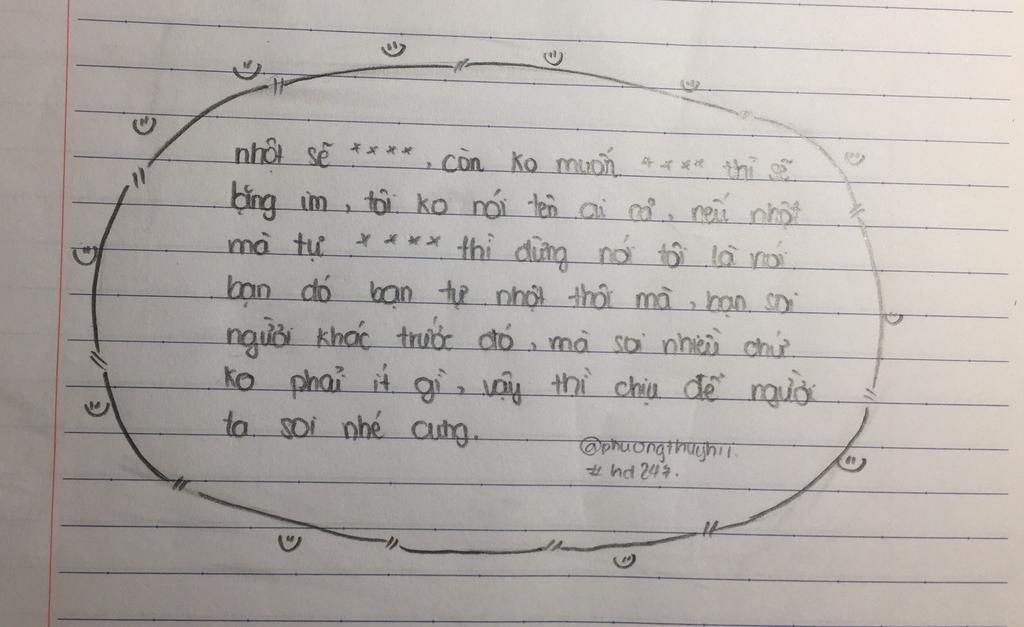 nhột sẽ ****, còn ko muốn **** thì sẽ
lặng im, tôi ko nói tên ai cả, nếu nhột
mà tự **** thì đừng nói tôi là nói
bạn đó bạn tự nhột thôi mà, bạn soi
người khác trước đó, mà soi nhiều chứ
ko phải ít gì, vậy thì chịu để người
ta soi nhé cưng.
@phuongthuyhii.
# hd247.